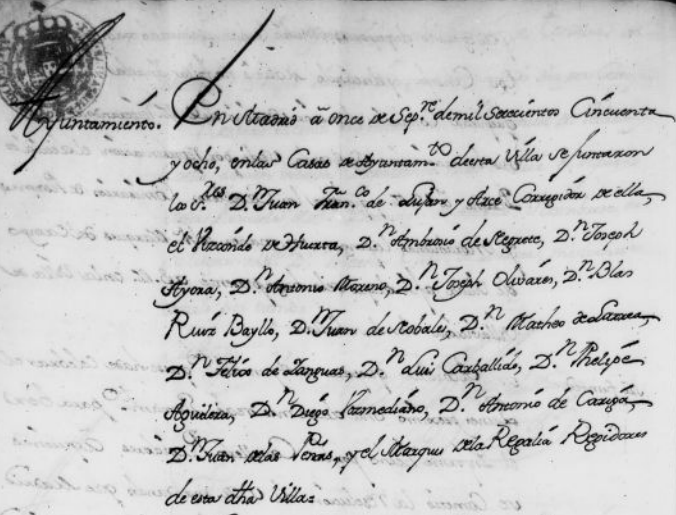 Ayuntamiento. En Madrid à once de Sep.re de mil setecientos Cincuenta
y ocho, en las Casas de Ayuntam.to de esta Villa se juntaron
los S.res D.n Juan Fran.co de Luján y Arce Corregidor de ella,
el Vizconde de Huerta, D.n Ambrosio de Negrete, D.n Joseph
Ayora, D.n Antonio Moreno, D.n Joseph Olivares, D.n Blas
Ruiz Bayllo, D.n Juan de Nobales, D.n Matheo de Larrea,
D.n Felix de Yanguas, D.n Luis Carballido, D.n Phelipe
Aguilera, D.n Diego Tormediano, D.n Antonio de
D.n Juan de las Peñas, y el Marques de la Regalia Regidores
de esta dha Villa=